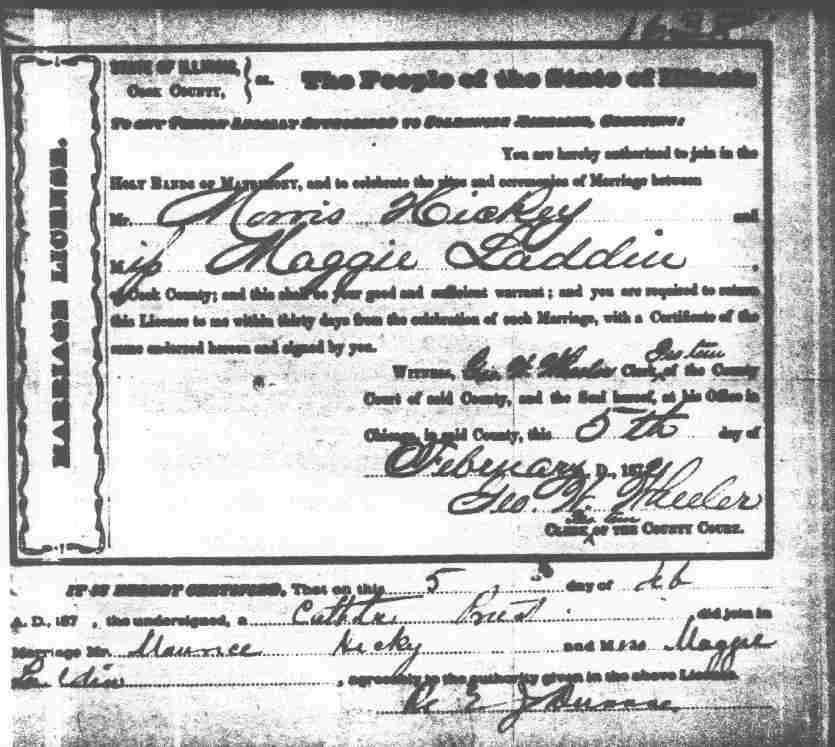 STATE OF ILLINOIS,
COOK COUNTY,
ss.
The People of the State of Illinois
MARRIAGE LICENSE.
You are hereby authorized to join in the
HOLY BANDS OF MATRIMONY, and to celebrate the rites and ceremonies of Marriage between
Mr. Morris Hickey and
Miss Maggie Laddin,
of Cook County; and this shall be your good and sufficient warrant; and you are required to return
this License to me within thirty days from the celebration of such Marriage, with a Certificate of the
same endorsed hereon and signed by you.
WITNESS, Geo. W. Wheeler Clerk Pro tem of the County
Court of said County, and the Seal hereof, at his Office in
Chicago, in said County, this 5th day of
February A. D., 187
Geo. W. Wheeler
CLERK Pro tem OF THE COUNTY COURT.
IT IS HEREBY CERTIFIED, That on this 5 day of Feb
A. D., 187 , the undersigned, a Priest did join in
Marriage Mr. Maurice Hicky and Miss Maggie
, agreeably to the authority given in the above License.